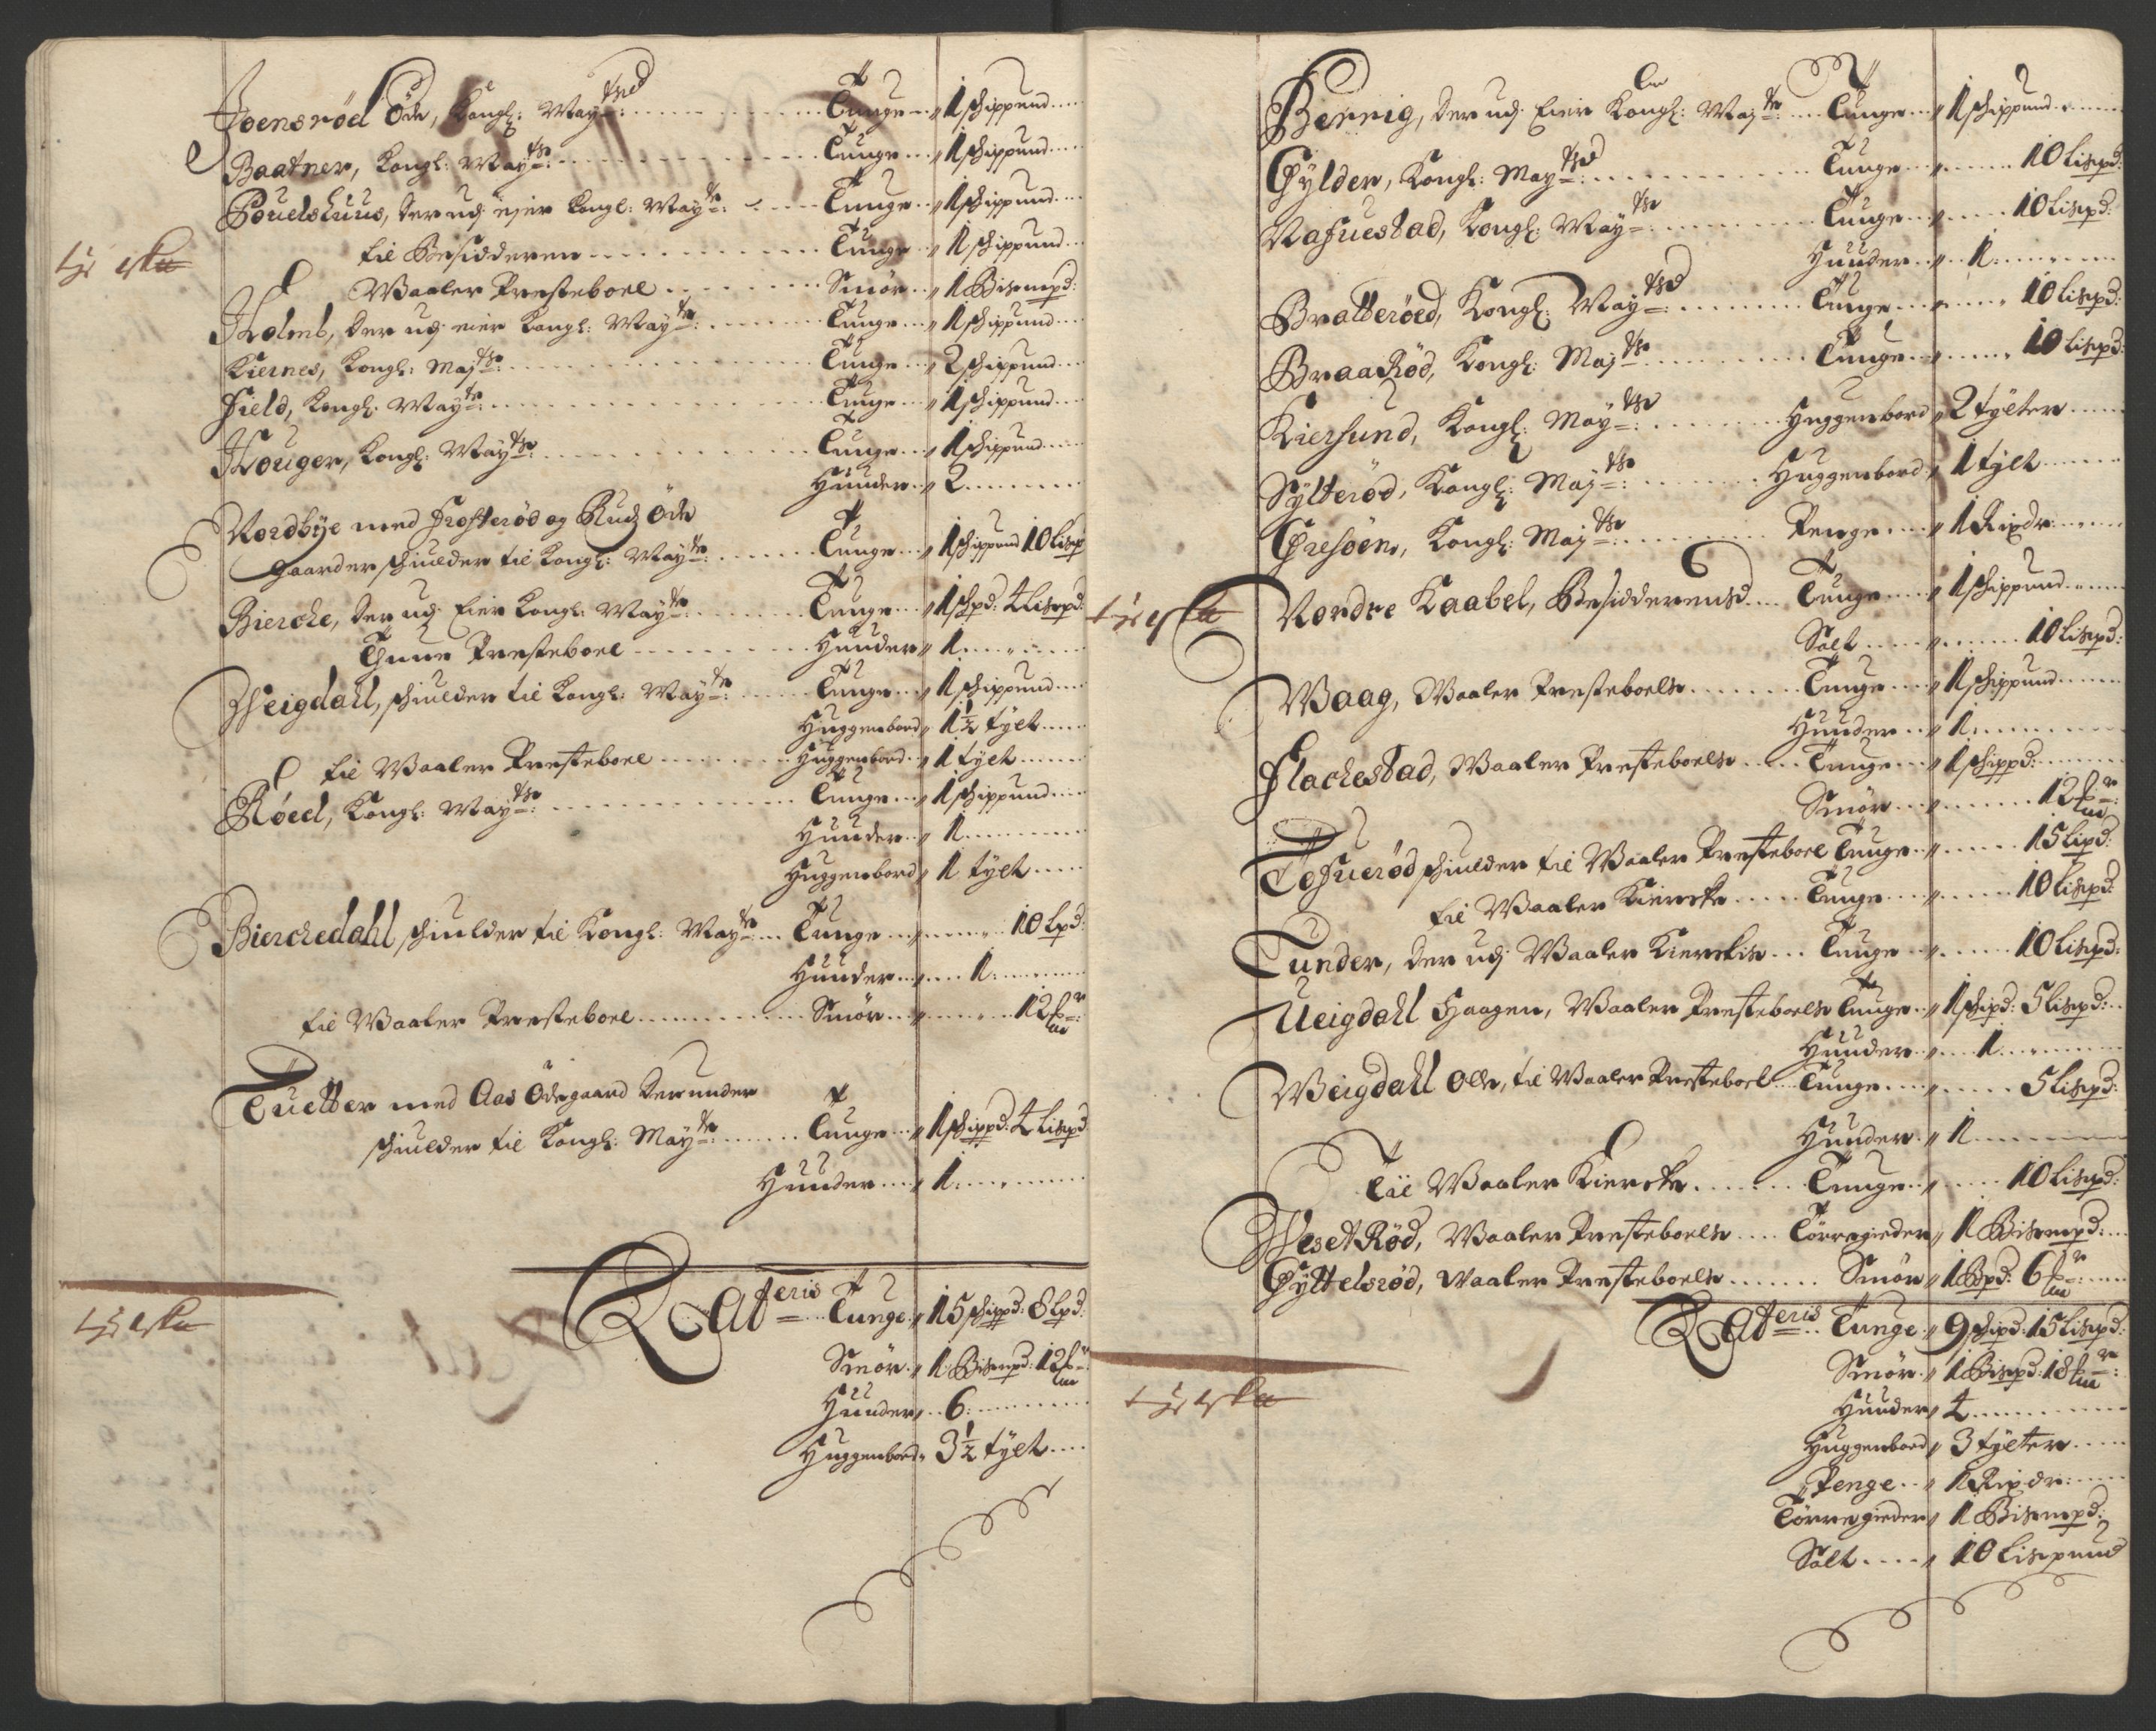 Joensrød Øde, Kongl: Mayts: Tunge 1 schippund
Baatner, Kongl: Mayts: Tunge 1 schippund
Pouelshuus, der udj eier Kongl: Mayts: Tunge 1 schippund
til Besidderen Tunge 1 schippund
Waaler Presteboel Smør 1 Bisempd:
Holmb, der udj eier Kongl: Mayts: Tunge 1 schippund
Kiernes, Kongl: Majts: Tunge 2 schippund
Field, Kongl: Mayts: Tunge 1 schippund
Houger, Kongl: Mayts: Tunge 1 schippund
Huuder 2
Nordbye med Frosterød og Rudj Øde
gaarder schulder til Kongl: Mayts: Tunge 1 schippund 10 Lisp
Bierche, der udj Eier Kongl: Mayts: Tunge 1 schpd: 4 Lispd:
Thune Presteboel Huuder 1
Weigdahl, schulder til Kongl: Mayts: Tunge 1 schippund
Huggenbord 1½ tylt
til Waaler Presteboel Huggenbord 1 tylt
Røed, Kongl: Mayts: Tunge 1 schippund
Huuder 1
Huggenbord 1 tylt
Bierchedahl, schulder til Kongl: Mayts: Tunge 10 Lpd:
Huuder 1
til Waaler Presteboel Smør 12
Tuetter med Aas Ødegaard derunder
schulder til Kongl: Mayts: Tunge 1 schippd: 4 Lispd
Huuder 1
Lateris Tunge 15 schippd: 8 Lpd:
Smør 1 Bisempd: 12
Huuder 6
Huggenbord 3½ tylt
Bernig, der udj Eier Kongl: Majts: Tunge 1 schippund
Gylder, Kongl: Mayts: Tunge 10 Lispd:
Nafuestad, Kongl: Mayts: Tunge 10 Lispd:
Huuder 1
Bratterøed, Kongl: Mayts: Tunge 10 Lispd:
BraaRød, Kongl: Majts: Tunge 10 Lispd:
Kiersund, Kongl: Mayts: Huggenbord 2 tylter
Sylterød, Kongl: Majts: Huggenbord 1 tylt
Gresøen, Kongl: Majts: Penge 1 Rixdr:
Nordre Kaabel, Besidderens Tunge 1 schippund
Salt 10 Lispd:
Waag, Waaler Presteboels Tunge 1 schippund
Huuder 1
Flachestad, Waaler Presteboels Tunge 1 schippd:
Smør 12
Tofuerød schulder til Waaler Presteboel Tunge 15 Lispd:
til Waaler Kiercke Tunge 10 Lispd:
Tunder, der udj Waaler Kierckis Tunge 10 Lispd:
Ueigdahl Haagen, Waaler Presteboels Tunge 1 schipd: 5 Lispd:
Huuder 1
Weigdahl Olle, til Waaler Presteboel Tunge 5 Lispd:
Huuder 1
Til Waaler Kiercke Tunge 10 Lispd:
WesetRød, Waaler Presteboels Tørregieder 1 Bisempd:
Gyttelsrød, Waaler Presteboels Smør 1 Bpd: 6
Lateris Tunge 9 schipd: 15 Lispd:
Smør 1 Bispd: 18
Huuder 4
Huggenbord 3 tylter
Penge 1 Rixdr:
Tørregieder 1 Bisempd:
Salt 10 Lispund